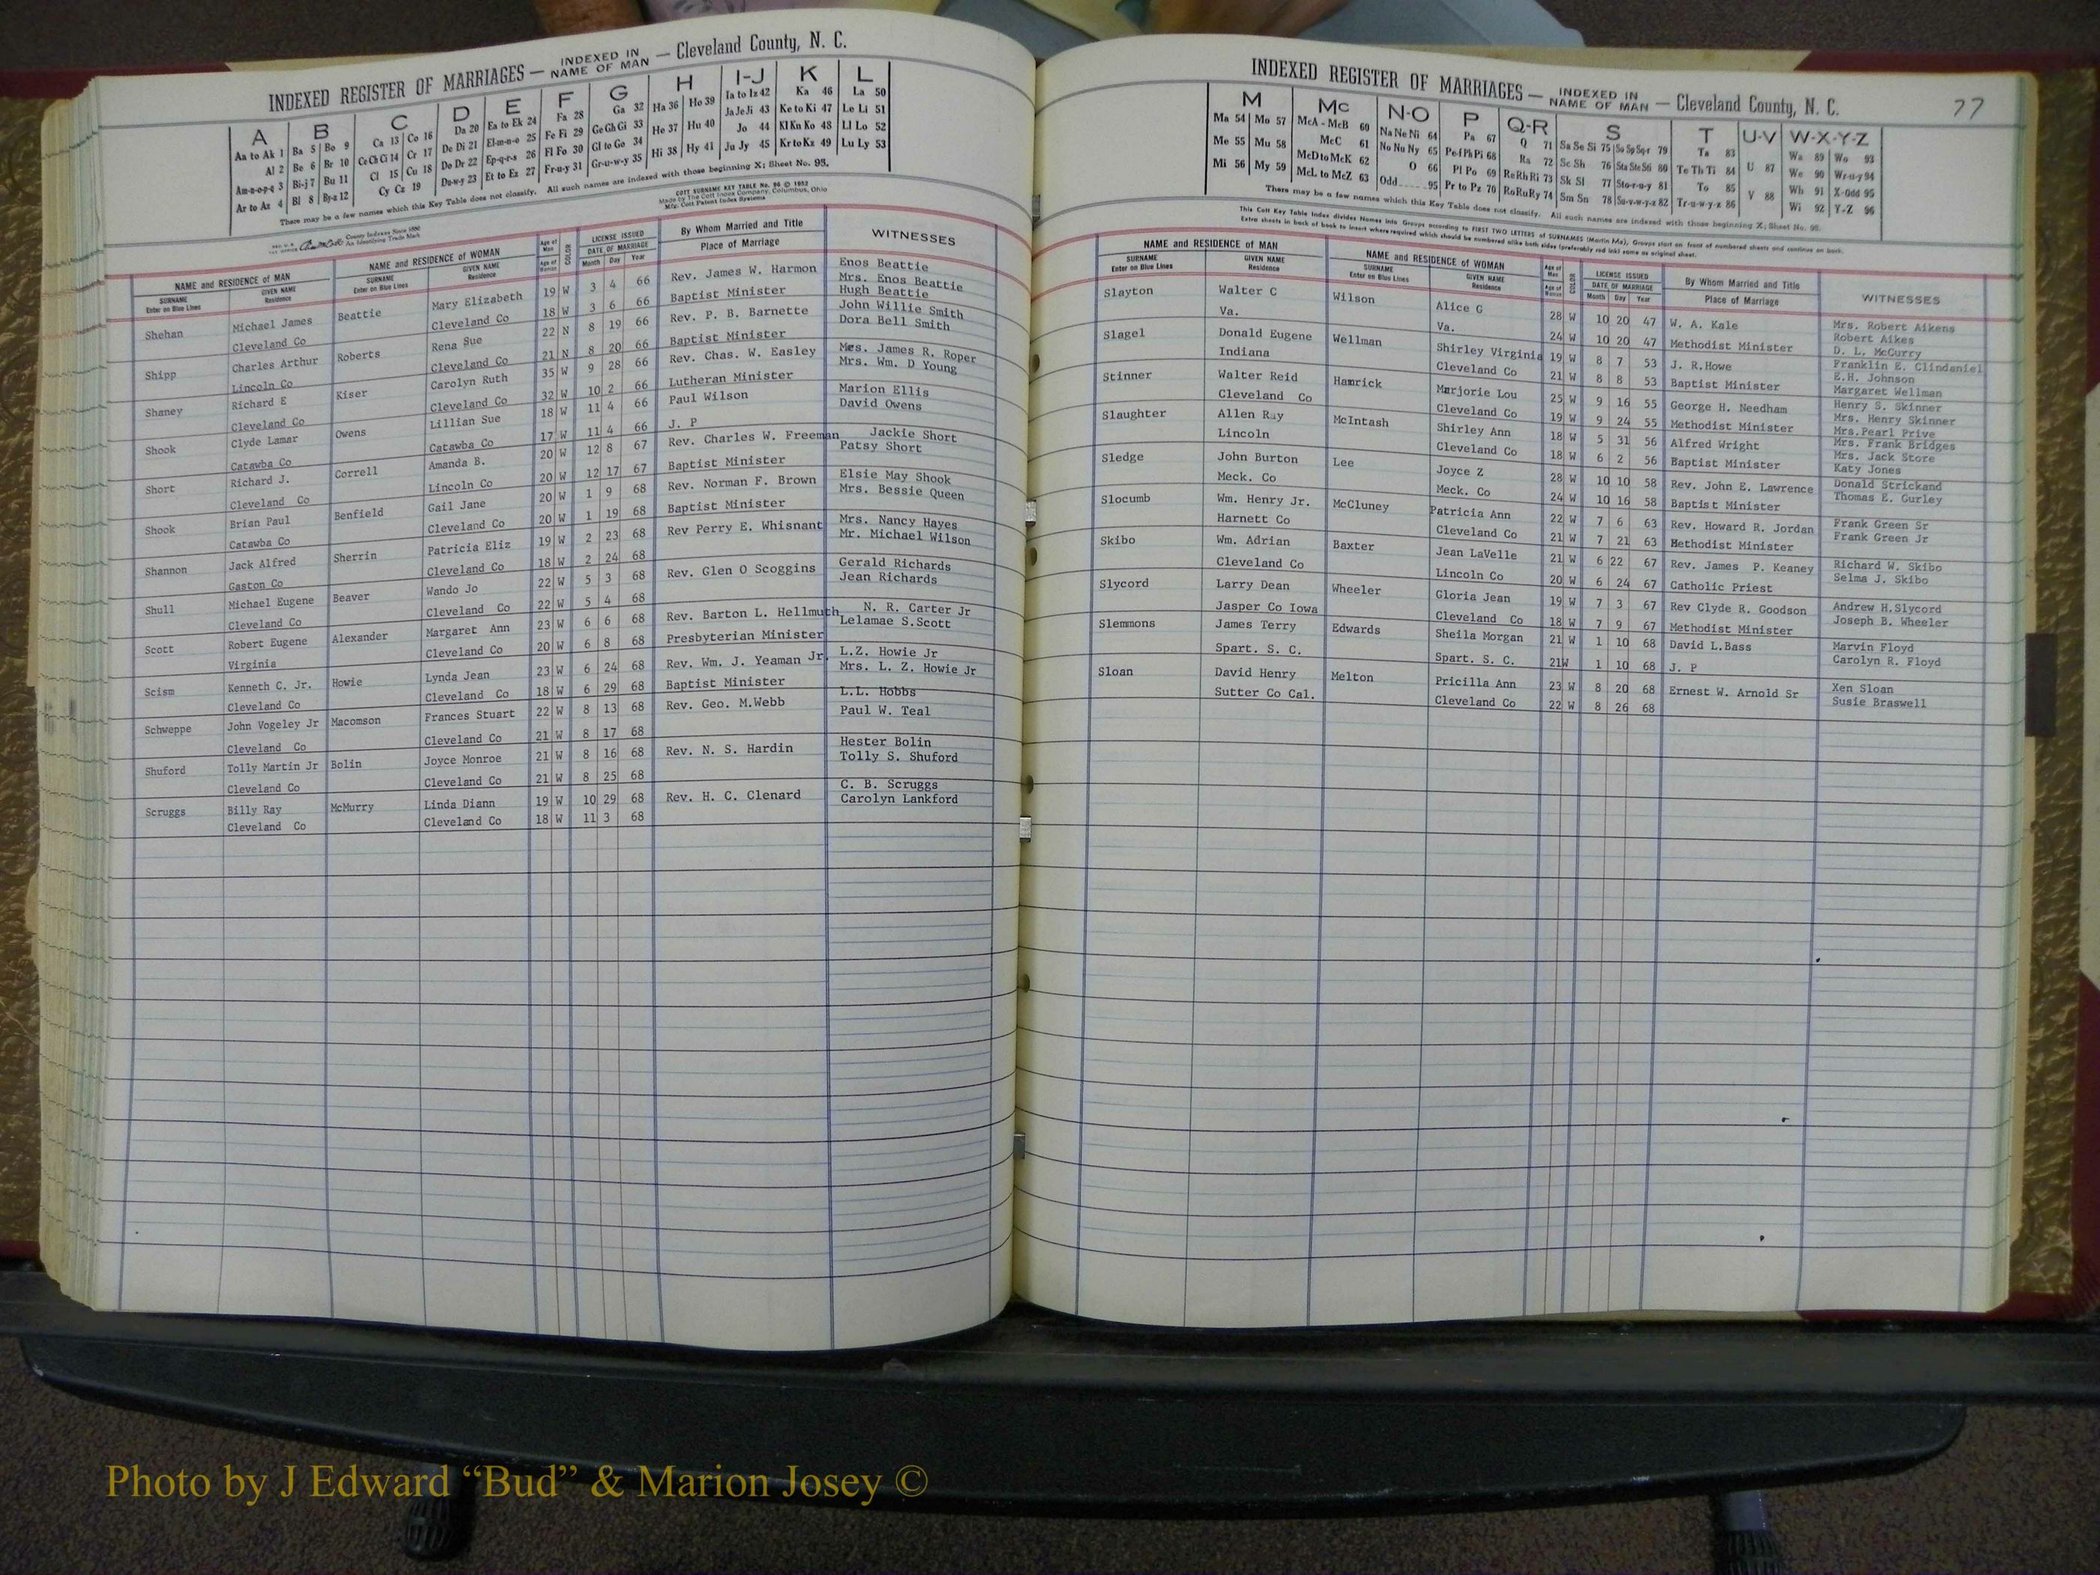 INDEXED REGISTER OF MARRIAGES — INDEXED IN NAME OF MAN — Cleveland County, N. C.
A B C D E F G H I-J K L
Aa to Ak 1 Ba 5 Bo 9 Ca 13 Co 16 Da 20 Ea to Ek 24 Fa 28 Ga 32 Ha 36 Ho 39 Ia to Iz 42 Ka 46 La 50
Al 2 Be 6 Br 10 Ce Ch Ci 14 Cr 17 De Di 21 El-m-n-o 25 Fe Fi 29 Ge Gh Gi 33 He 37 Hu 40 Ja Je Ji 43 Ke to Ki 47 Le Li 51
Am-n-o-p-q 3 Bi-j 7 Bu 11 Cl 15 Cu 18 Do Dr 22 Ep-q-r-s 26 Fl Fo 30 Gl to Go 34 Hi 38 Hy 41 Jo 44 Kl Kn Ko 48 Ll Lo 52
Ar to Az 4 Bl 8 By-z 12 Cy Cz 19 Du-w-y 23 Et to Ez 27 Fr-u-y 31 Gr-u-w-y 35 Ju Jy 45 Kr to Kz 49 Lu Ly 53
There may be a few names which this Key Table does not classify. All such names are indexed with those beginning X; Sheet No. 95.
County Indexes Since 1888 An Identifying Trade Mark
COTT SURNAME KEY TABLE No. 96 © 1952
Made by The Cott Index Company, Columbus, Ohio
Mfg. Cott Patent Index Systems
NAME and RESIDENCE of MAN NAME and RESIDENCE of WOMAN Age of Man Age of Woman COLOR LICENSE ISSUED DATE OF MARRIAGE By Whom Married and Title Place of Marriage WITNESSES
SURNAME Enter on Blue Lines GIVEN NAME Residence SURNAME Enter on Blue Lines GIVEN NAME Residence Month Day Year
Shehan Michael James Beattie Mary Elizabeth 19 W 3 4 66 Rev. James W. Harmon Enos Beattie
Mrs. Enos Beattie
Cleveland Co Cleveland Co 18 W 3 6 66 Baptist Minister Hugh Beattie
Shipp Charles Arthur Roberts Rena Sue 22 N 8 19 66 Rev. P. B. Barnette John Willie Smith
Lincoln Co Cleveland Co 21 N 8 20 66 Baptist Minister Dora Bell Smith
Shaney Richard E Kiser Carolyn Ruth 35 W 9 28 66 Rev. Chas. W. Easley Mrs. James R. Roper
Cleveland Co Cleveland Co 32 W 10 2 66 Lutheran Minister Mrs. Wm. D Young
Shook Clyde Lamar Owens Lillian Sue 18 W 11 4 66 Paul Wilson Marion Ellis
Catawba Co Catawba Co 17 W 11 4 66 J. P David Owens
Short Richard J. Correll Amanda B. 20 W 12 8 67 Rev. Charles W. Freeman Jackie Short
Cleveland Co Lincoln Co 20 W 12 17 67 Baptist Minister Patsy Short
Shook Brian Paul Benfield Gail Jane 20 W 1 9 68 Rev. Norman F. Brown Elsie May Shook
Catawba Co Cleveland Co 20 W 1 19 68 Baptist Minister Mrs. Bessie Queen
Shannon Jack Alfred Sherrin Patricia Eliz 19 W 2 23 68 Rev Perry E. Whisnant Mrs. Nancy Hayes
Gaston Co Cleveland Co 18 W 2 24 68 Mr. Michael Wilson
Shull Michael Eugene Beaver Wando Jo 22 W 5 3 68 Rev. Glen O Scoggins Gerald Richards
Cleveland Co Cleveland Co 22 W 5 4 68 Jean Richards
Scott Robert Eugene Alexander Margaret Ann 23 W 6 6 68 Rev. Barton L. Hellmuth N. R. Carter Jr
Virginia Cleveland Co 20 W 6 8 68 Presbyterian Minister Lelamae S.Scott
Scism Kenneth C. Jr. Howie Lynda Jean 23 W 6 24 68 Rev. Wm. J. Yeaman Jr. L.Z. Howie Jr
Cleveland Co Cleveland Co 18 W 6 29 68 Baptist Minister Mrs. L. Z. Howie Jr
Schweppe John Vogeley Jr Macomson Frances Stuart 22 W 8 13 68 Rev. Geo. M.Webb L.L. Hobbs
Cleveland Co Cleveland Co 21 W 8 17 68 Paul W. Teal
Shuford Tolly Martin Jr Bolin Joyce Monroe 21 W 8 16 68 Rev. N. S. Hardin Hester Bolin
Cleveland Co Cleveland Co 21 W 8 25 68 Tolly S. Shuford
Scruggs Billy Ray McMurry Linda Diann 19 W 10 29 68 Rev. H. C. Clenard C. B. Scruggs
Cleveland Co Cleveland Co 18 W 11 3 68 Carolyn Lankford
INDEXED REGISTER OF MARRIAGES — INDEXED IN NAME OF MAN — Cleveland County, N. C. 77
M Mc N-O P Q-R S T U-V W-X-Y-Z
Ma 54 Mo 57 McA - McB 60 Na Ne Ni 64 Pa 67 Q 71 Sa Se Si 75 So Sp Sq-r 79 Ta 83 U 87 Wa 89 Wo 93
Me 55 Mu 58 McC 61 No Nu Ny 65 Pe Pf Ph Pi 68 Ra 72 Sc Sh 76 Sta Ste Sti 80 Te Th Ti 84 V 88 We 90 Wr-u-y 94
Mi 56 My 59 McD to McK 62 O 66 Pl Po 69 Re Rh Ri 73 Sk Sl 77 Sto-r-u-y 81 To 85 Wh 91 X-Odd 95
McL to McZ 63 Odd 95 Pr to Pz 70 Ro Ru Ry 74 Sm Sn 78 Su-v-w-y-z 82 Tr-u-w-y-z 86 Wi 92 Y-Z 96
There may be a few names which this Key Table does not classify. All such names are indexed with those beginning X; Sheet No. 95.
This Cott Key Table Index divides Names into Groups according to FIRST TWO LETTERS of SURNAMES (Martin Ma), Groups start on front of numbered sheets and continue on back.
Extra sheets in back of book to insert where required which should be numbered alike both sides (preferably red ink) same as original sheet.
NAME and RESIDENCE of MAN NAME and RESIDENCE of WOMAN Age of Man Age of Woman COLOR LICENSE ISSUED DATE OF MARRIAGE By Whom Married and Title Place of Marriage WITNESSES
SURNAME Enter on Blue Lines GIVEN NAME Residence SURNAME Enter on Blue Lines GIVEN NAME Residence Month Day Year
Slayton Walter C Wilson Alice G 28 W 10 20 47 W. A. Kale Mrs. Robert Aikens
Robert Aikes
Va. Va. 24 W 10 20 47 Methodist Minister D. L. McCurry
Slagel Donald Eugene Wellman Shirley Virginia 19 W 8 7 53 J. R.Howe Franklin E. Clindaniel
E.H. Johnson
Indiana Cleveland Co 21 W 8 8 53 Baptist Minister Margaret Wellman
Stinner Walter Reid Hamrick Marjorie Lou 25 W 9 16 55 George H. Needham Henry S. Skinner
Mrs. Henry Skinner
Cleveland Co Cleveland Co 19 W 9 24 55 Methodist Minister Mrs.Pearl Prive
Slaughter Allen Ray McIntash Shirley Ann 18 W 5 31 56 Alfred Wright Mrs. Frank Bridges
Mrs. Jack Store
Lincoln Cleveland Co 18 W 6 2 56 Baptist Minister Katy Jones
Sledge John Burton Lee Joyce Z 28 W 10 10 58 Rev. John E. Lawrence Donald Strickand
Meck. Co Meck. Co 24 W 10 16 58 Baptist Minister Thomas E. Gurley
Slocumb Wm. Henry Jr. McCluney Patricia Ann 22 W 7 6 63 Rev. Howard R. Jordan Frank Green Sr
Harnett Co Cleveland Co 21 W 7 21 63 Methodist Minister Frank Green Jr
Skibo Wm. Adrian Baxter Jean LaVelle 21 W 6 22 67 Rev. James P. Keaney Richard W. Skibo
Cleveland Co Lincoln Co 20 W 6 24 67 Catholic Priest Selma J. Skibo
Slycord Larry Dean Wheeler Gloria Jean 19 W 7 3 67 Rev Clyde R. Goodson Andrew H.Slycord
Jasper Co Iowa Cleveland Co 18 W 7 9 67 Methodist Minister Joseph B. Wheeler
Slemmons James Terry Edwards Sheila Morgan 21 W 1 10 68 David L.Bass Marvin Floyd
Spart. S. C. Spart. S. C. 21W 1 10 68 J. P Carolyn R. Floyd
Sloan David Henry Melton Pricilla Ann 23 W 8 20 68 Ernest W. Arnold Sr Xen Sloan
Sutter Co Cal. Cleveland Co 22 W 8 26 68 Susie Braswell
Photo by J Edward “Bud” & Marion Josey ©